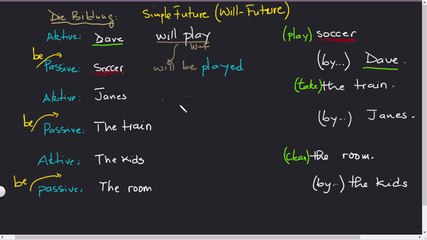 Die Bildung: Simple Future (Will-Future)
Aktive: Dave will play (play) soccer
be
Passive: Soccer will be played (by...) Dave.
Aktive: Janes (take) the train.
be
Passive: The train (by...) Janes.
Aktive: The kids (clean) the room.
be
passive: The room (by...) the kids